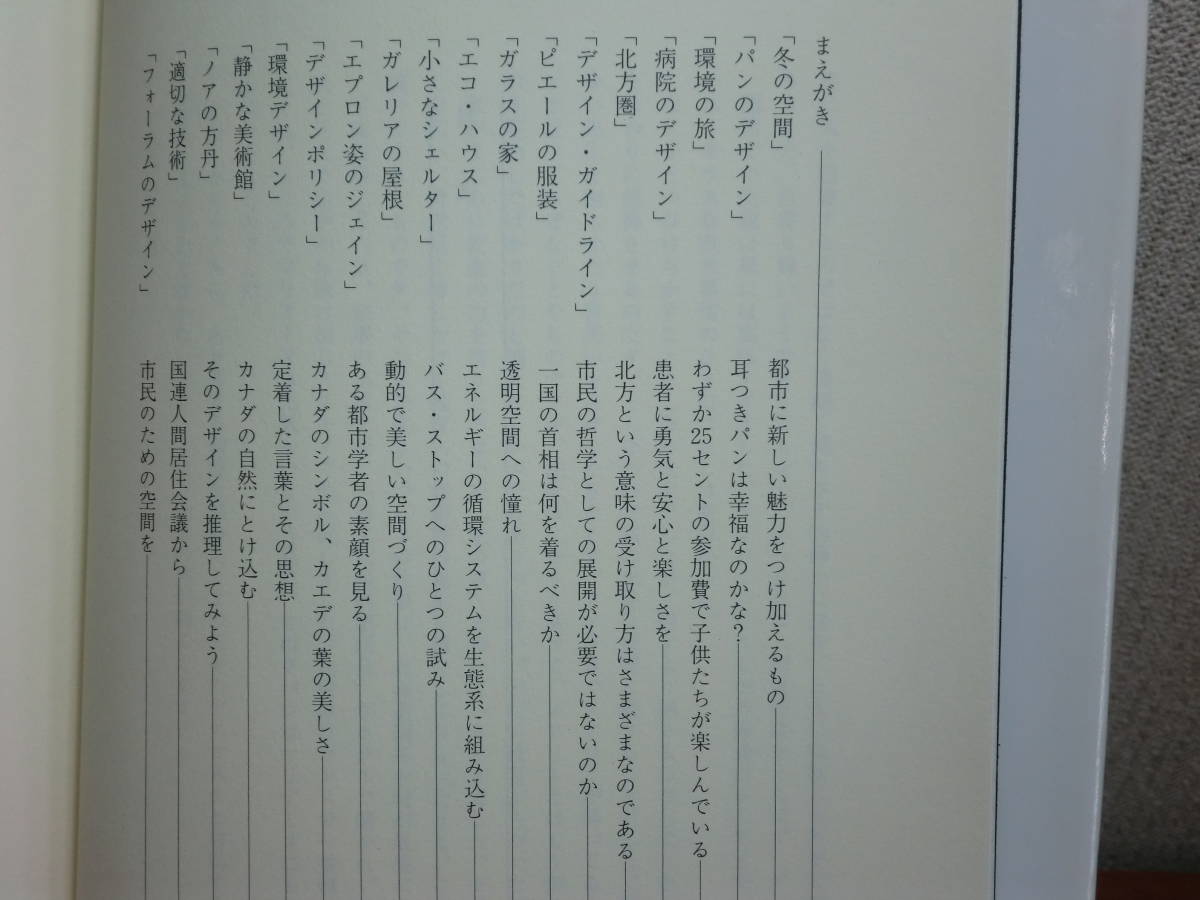 まえがき
「冬の空間」 都市に新しい魅力をつけ加えるもの
「パンのデザイン」 耳つきパンは幸福なのかな?
「環境の旅」 わずか25セントの参加費で子供たちが楽しんでいる
「病院のデザイン」 患者に勇気と安心と楽しさを
「北方圏」 北方という意味の受け取り方はさまざまなのである
「デザイン・ガイドライン」 市民の哲学としての展開が必要ではないのか
「ピエールの服装」 一国の首相は何を着るべきか
「ガラスの家」 透明空間への憧れ
「エコ・ハウス」 エネルギーの循環システムを生態系に組み込む
「小さなシェルター」 バス・ストップへのひとつの試み
「ガレリアの屋根」 動的で美しい空間づくり
「エプロン姿のジェイン」 ある都市学者の素顔を見る
「デザインポリシー」 カナダのシンボル、カエデの葉の美しさ
「環境デザイン」 定着した言葉とその思想
「静かな美術館」 カナダの自然にとけ込む
「ノアの方丹」 そのデザインを推理してみよう
「適切な技術」 国連人間居住会議から
「フォーラムのデザイン」 市民のための空間を